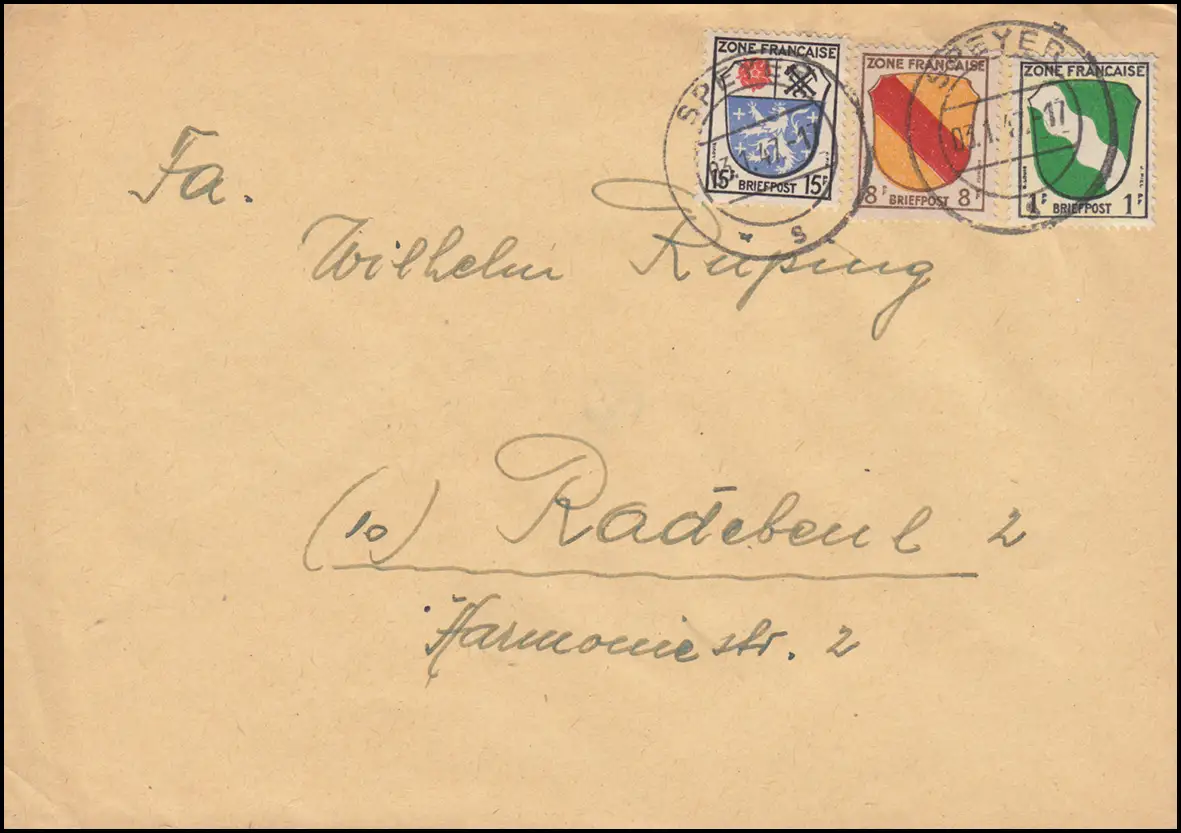 ZONE FRANÇAISE
15F BRIEFPOST 15F
ZONE FRANÇAISE
8F BRIEFPOST 8F
ZONE FRANÇAISE
1F BRIEFPOST 1F
SPEYER
03.1.47.-17
* s
SPEYER
03.1.47.-17
Fa.
Wilhelm Rüping
(10) Radebeul 2
Harmoniestr. 2